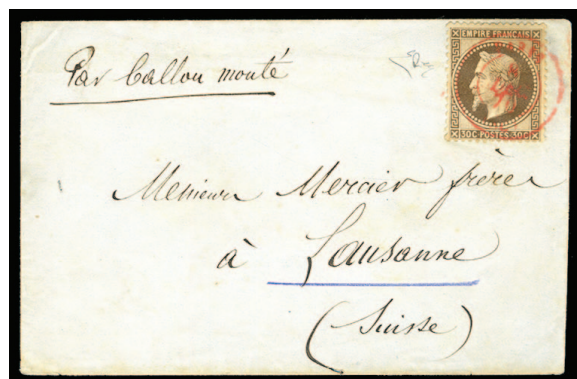 Par ballon monté
EMPIRE FRANÇAIS
30C POSTES 30C
Messieurs Mercier frères
à Lausanne
(Suisse)